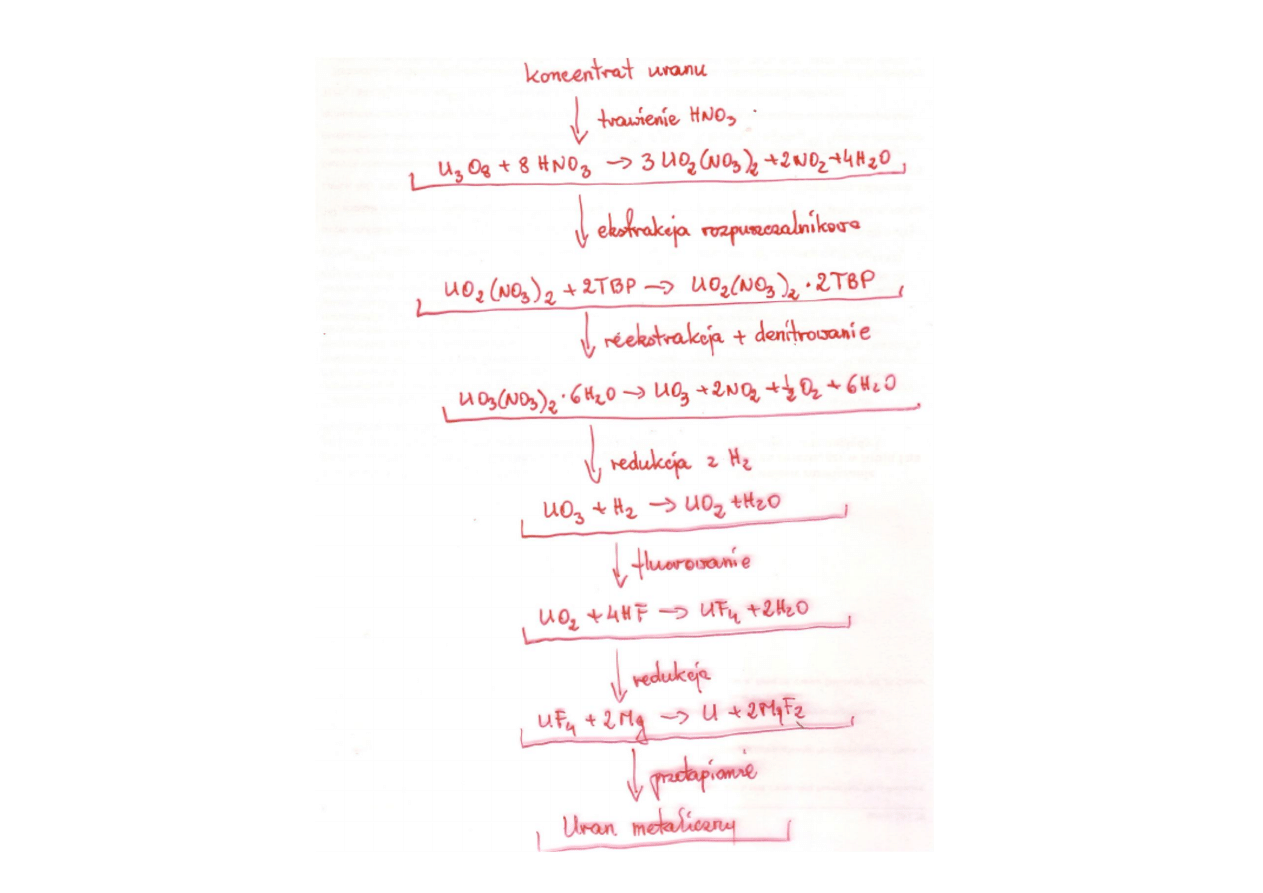 koncentrat uranu
trawienie HNO₃
U₃O₈ + 8 HNO₃ → 3 UO₂(NO₃)₂ + 2NO₂ + 4H₂O
ekstrakcja rozpuszczalnikowa
UO₂(NO₃)₂ + 2TBP → UO₂(NO₃)₂ · 2TBP
reekstrakcja + denitrowanie
UO₃(NO₃)₂ · 6H₂O → UO₃ + 2NO₂ + ½ O₂ + 6H₂O
redukcja z H₂
UO₃ + H₂ → UO₂ + H₂O
fluorowanie
UO₂ + 4HF → UF₄ + 2H₂O
redukcja
UF₄ + 2Mg → U + 2MgF₂
przetapianie
Uran metaliczny